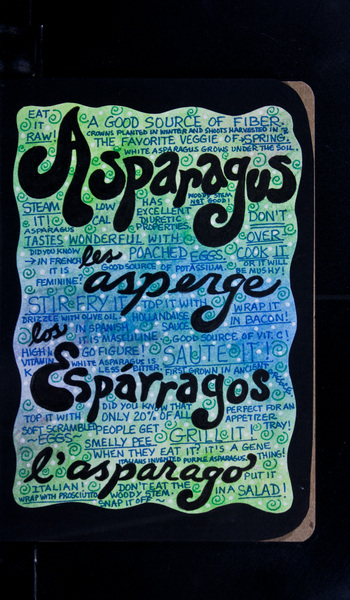 EAT A GOOD SOURCE OF FIBER.
IT CROWNS PLANTED IN WINTER AND SHOOTS HARVESTED IN
RAW! THE FAVORITE VEGGIE OF SPRING.
WHITE ASPARAGUS GROWS UNDER THE SOIL.
Asparagus
WOODY STEM
NOT GOOD!
STEAM LOW HAS DON'T
IT! CAL EXCELLENT
ASPARAGUS DIURETIC OVER
TASTES WONDERFUL WITH PROPERTIES. COOK IT
DID YOU KNOW les POACHED EGGS. OR IT WILL
IN FRENCH GOOD SOURCE OF POTASSIUM. BE MUSHY!
IT IS asperge
FEMININE!
STIR FRY IT TOP IT WITH WRAP IT
DRIZZLE WITH OLIVE OIL. HOLLANDAISE IN BACON!
los IN SPANISH SAUCE GOOD SOURCE OF VIT. C!
IT IS MASCULINE
HIGH IN GO FIGURE! SAUTE IT!
VITAMIN WHITE ASPARAGUS IS
LESS BITTER. FIRST GROWN IN ANCIENT
Espárragos
DID YOU KNOW THAT PERFECT FOR AN
TOP IT WITH ONLY 20% OF ALL APPETIZER
SOFT SCRAMBLED PEOPLE GET TRAY!
~EGGS~ SMELLY PEE GRILL IT!
WHEN THEY EAT IT? IT'S A GENE THING!
ITALIANS INVENTED PURPLE ASPARAGUS.
l'asparago PUT IT
ITALIAN! DON'T EAT THE IN A SALAD!
WRAP WITH PROSCIUTTO WOODY STEM.
SNAP IT OFF ~